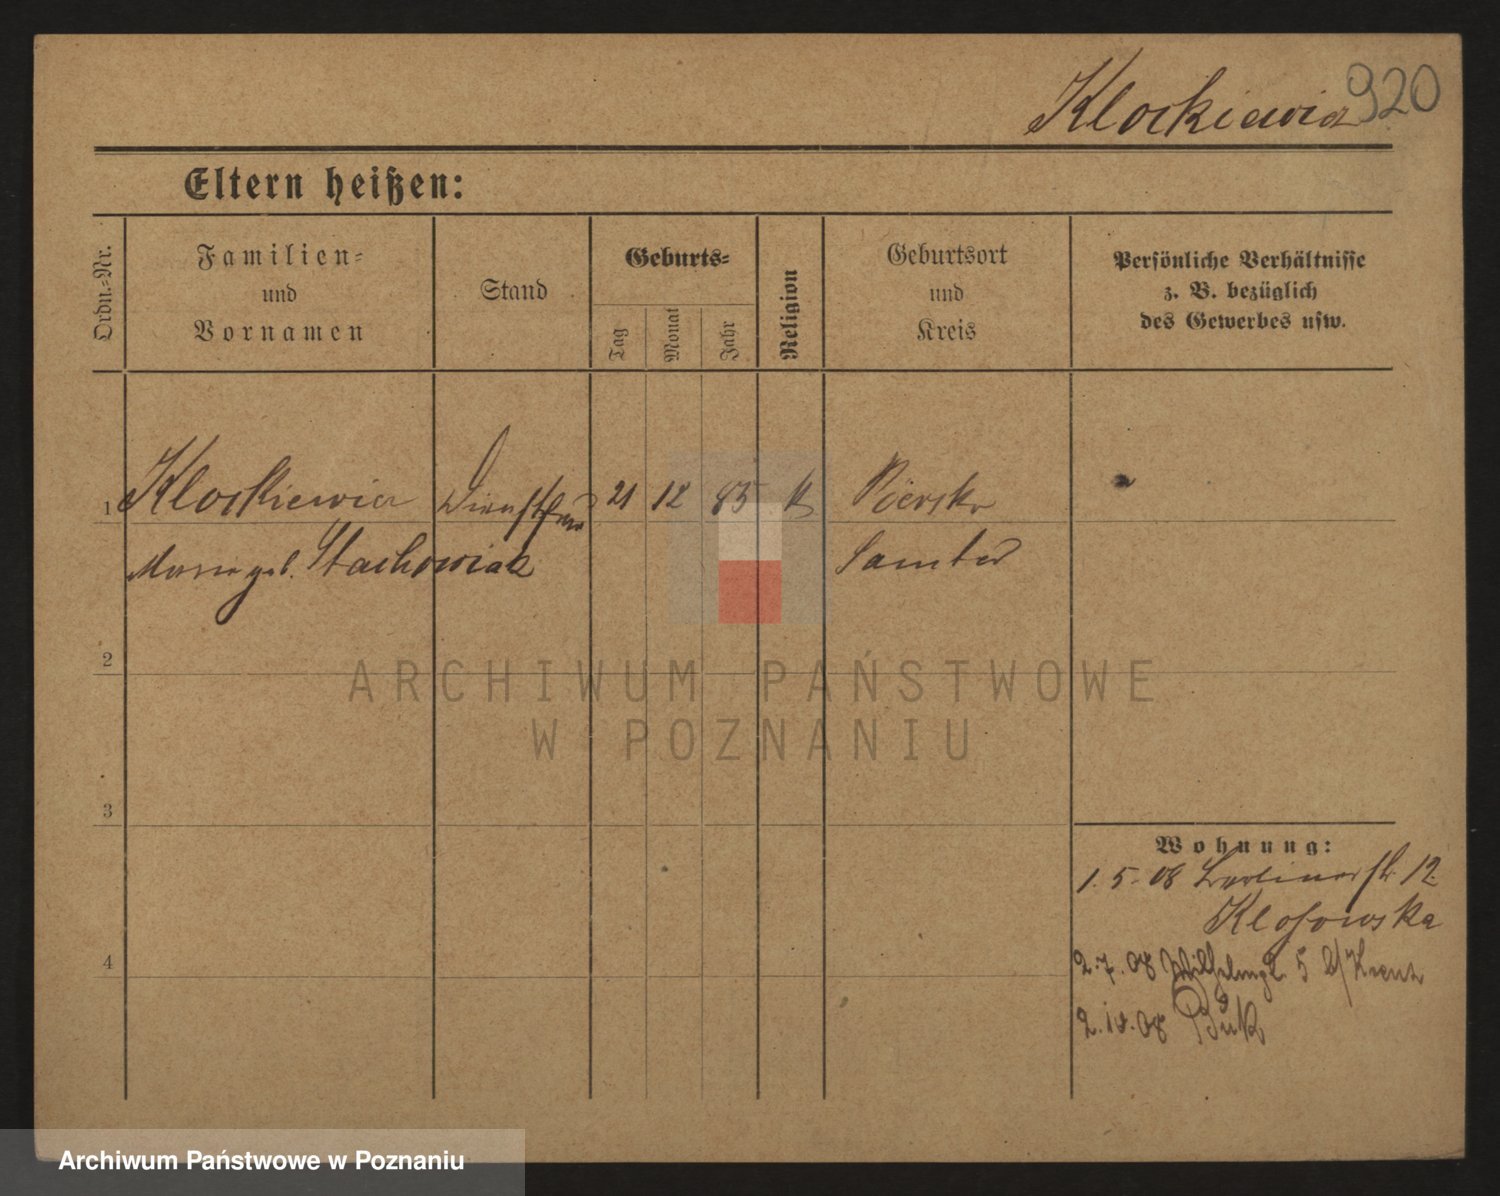 Klockiewicz 920
Eltern heißen:
Ordn.-Nr.
Familien-
und
Vornamen
Stand
Geburts-
Tag
Monat
Jahr
Religion
Geburtsort
und
Kreis
Persönliche Verhältnisse
z. B. bezüglich
des Gewerbes usw.
1 Klockiewicz 21 12 85 K
geb. Stachowiak Samter
2
ARCHIWUM PAŃSTWOWE
W POZNANIU
3
Wohnung:
1. 5. 08 Berlinerstr. 12.
Klosowska
4
2. 7. 08 5
2. 10. 08 Buk
Archiwum Państwowe w Poznaniu